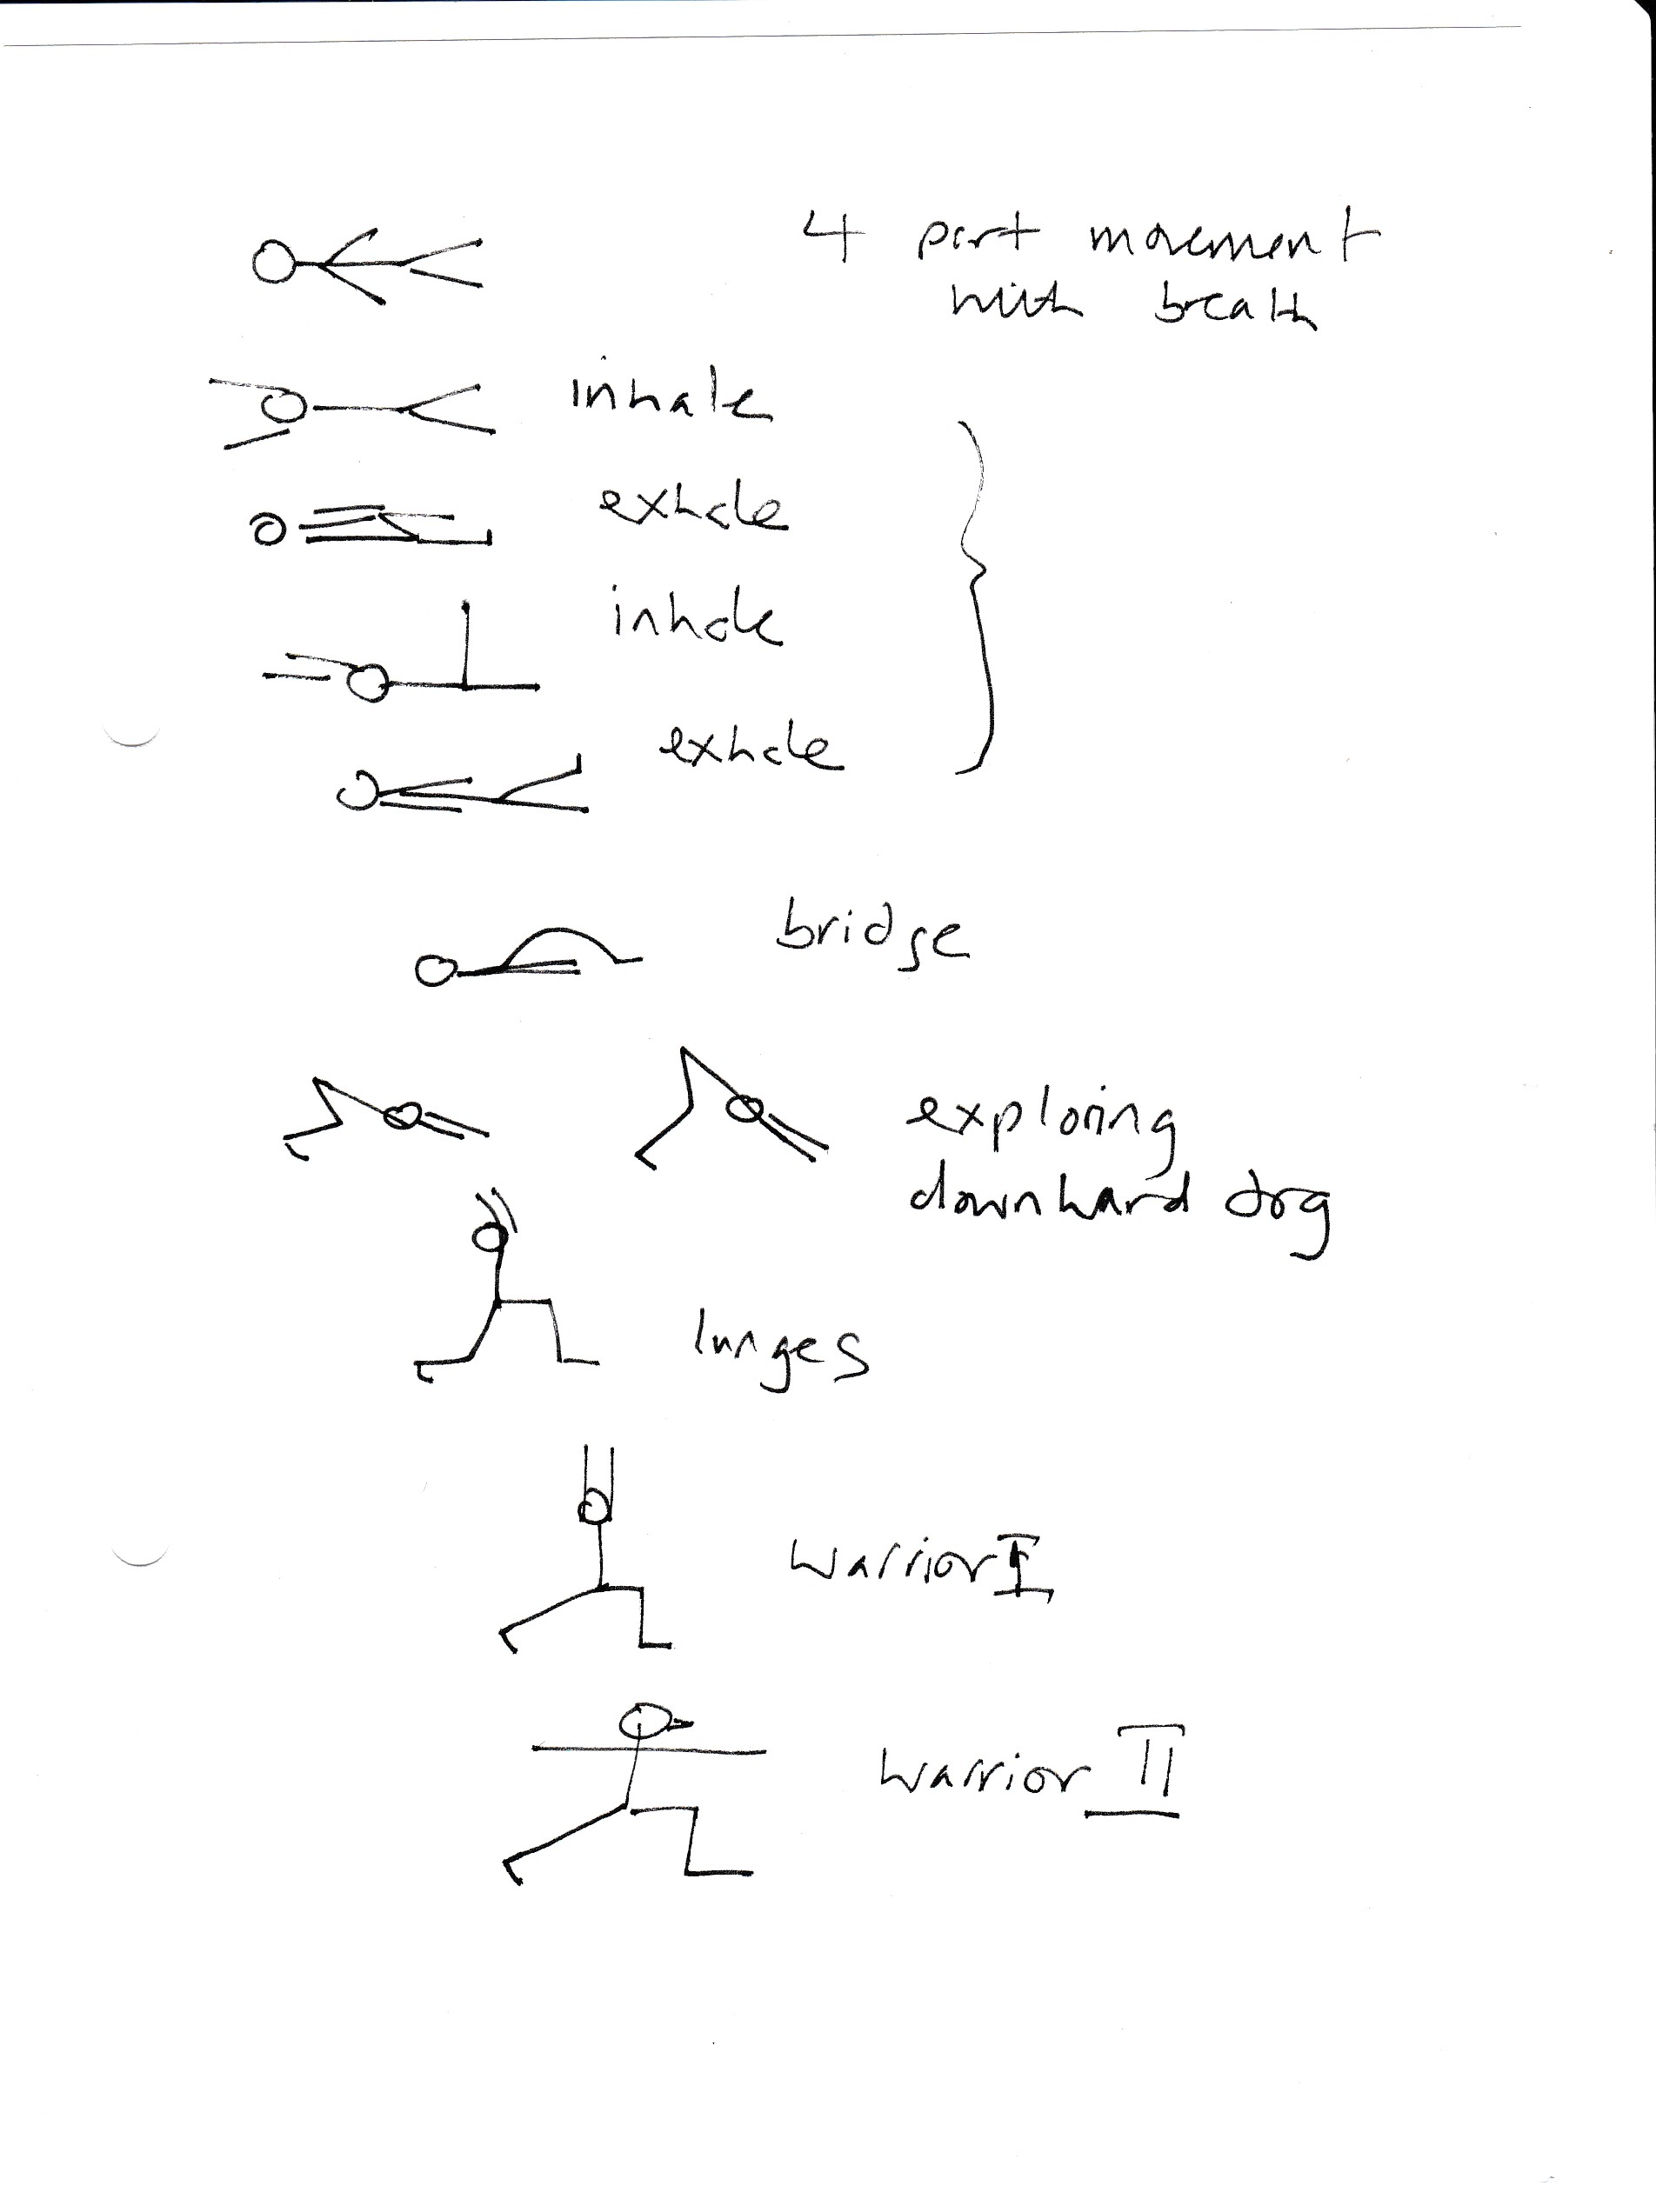 4 part movement
with breath
inhale
exhale
inhale
exhale
bridge
exploring
downward dog
lunges
warrior I
warrior II